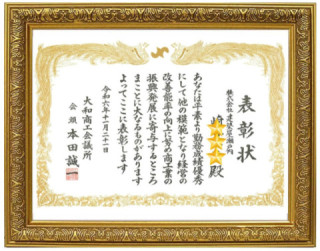 表彰状
株式会社
殿
あなたは平素より勤務成績優秀
にして他の模範となり経営の
改善能率の向上に努め商工業の
振興発展に寄与するところ
まことに大なるものがあります
よってここに表彰します
令和六年十一月二十一日
大和商工会議所
会頭 本田誠一